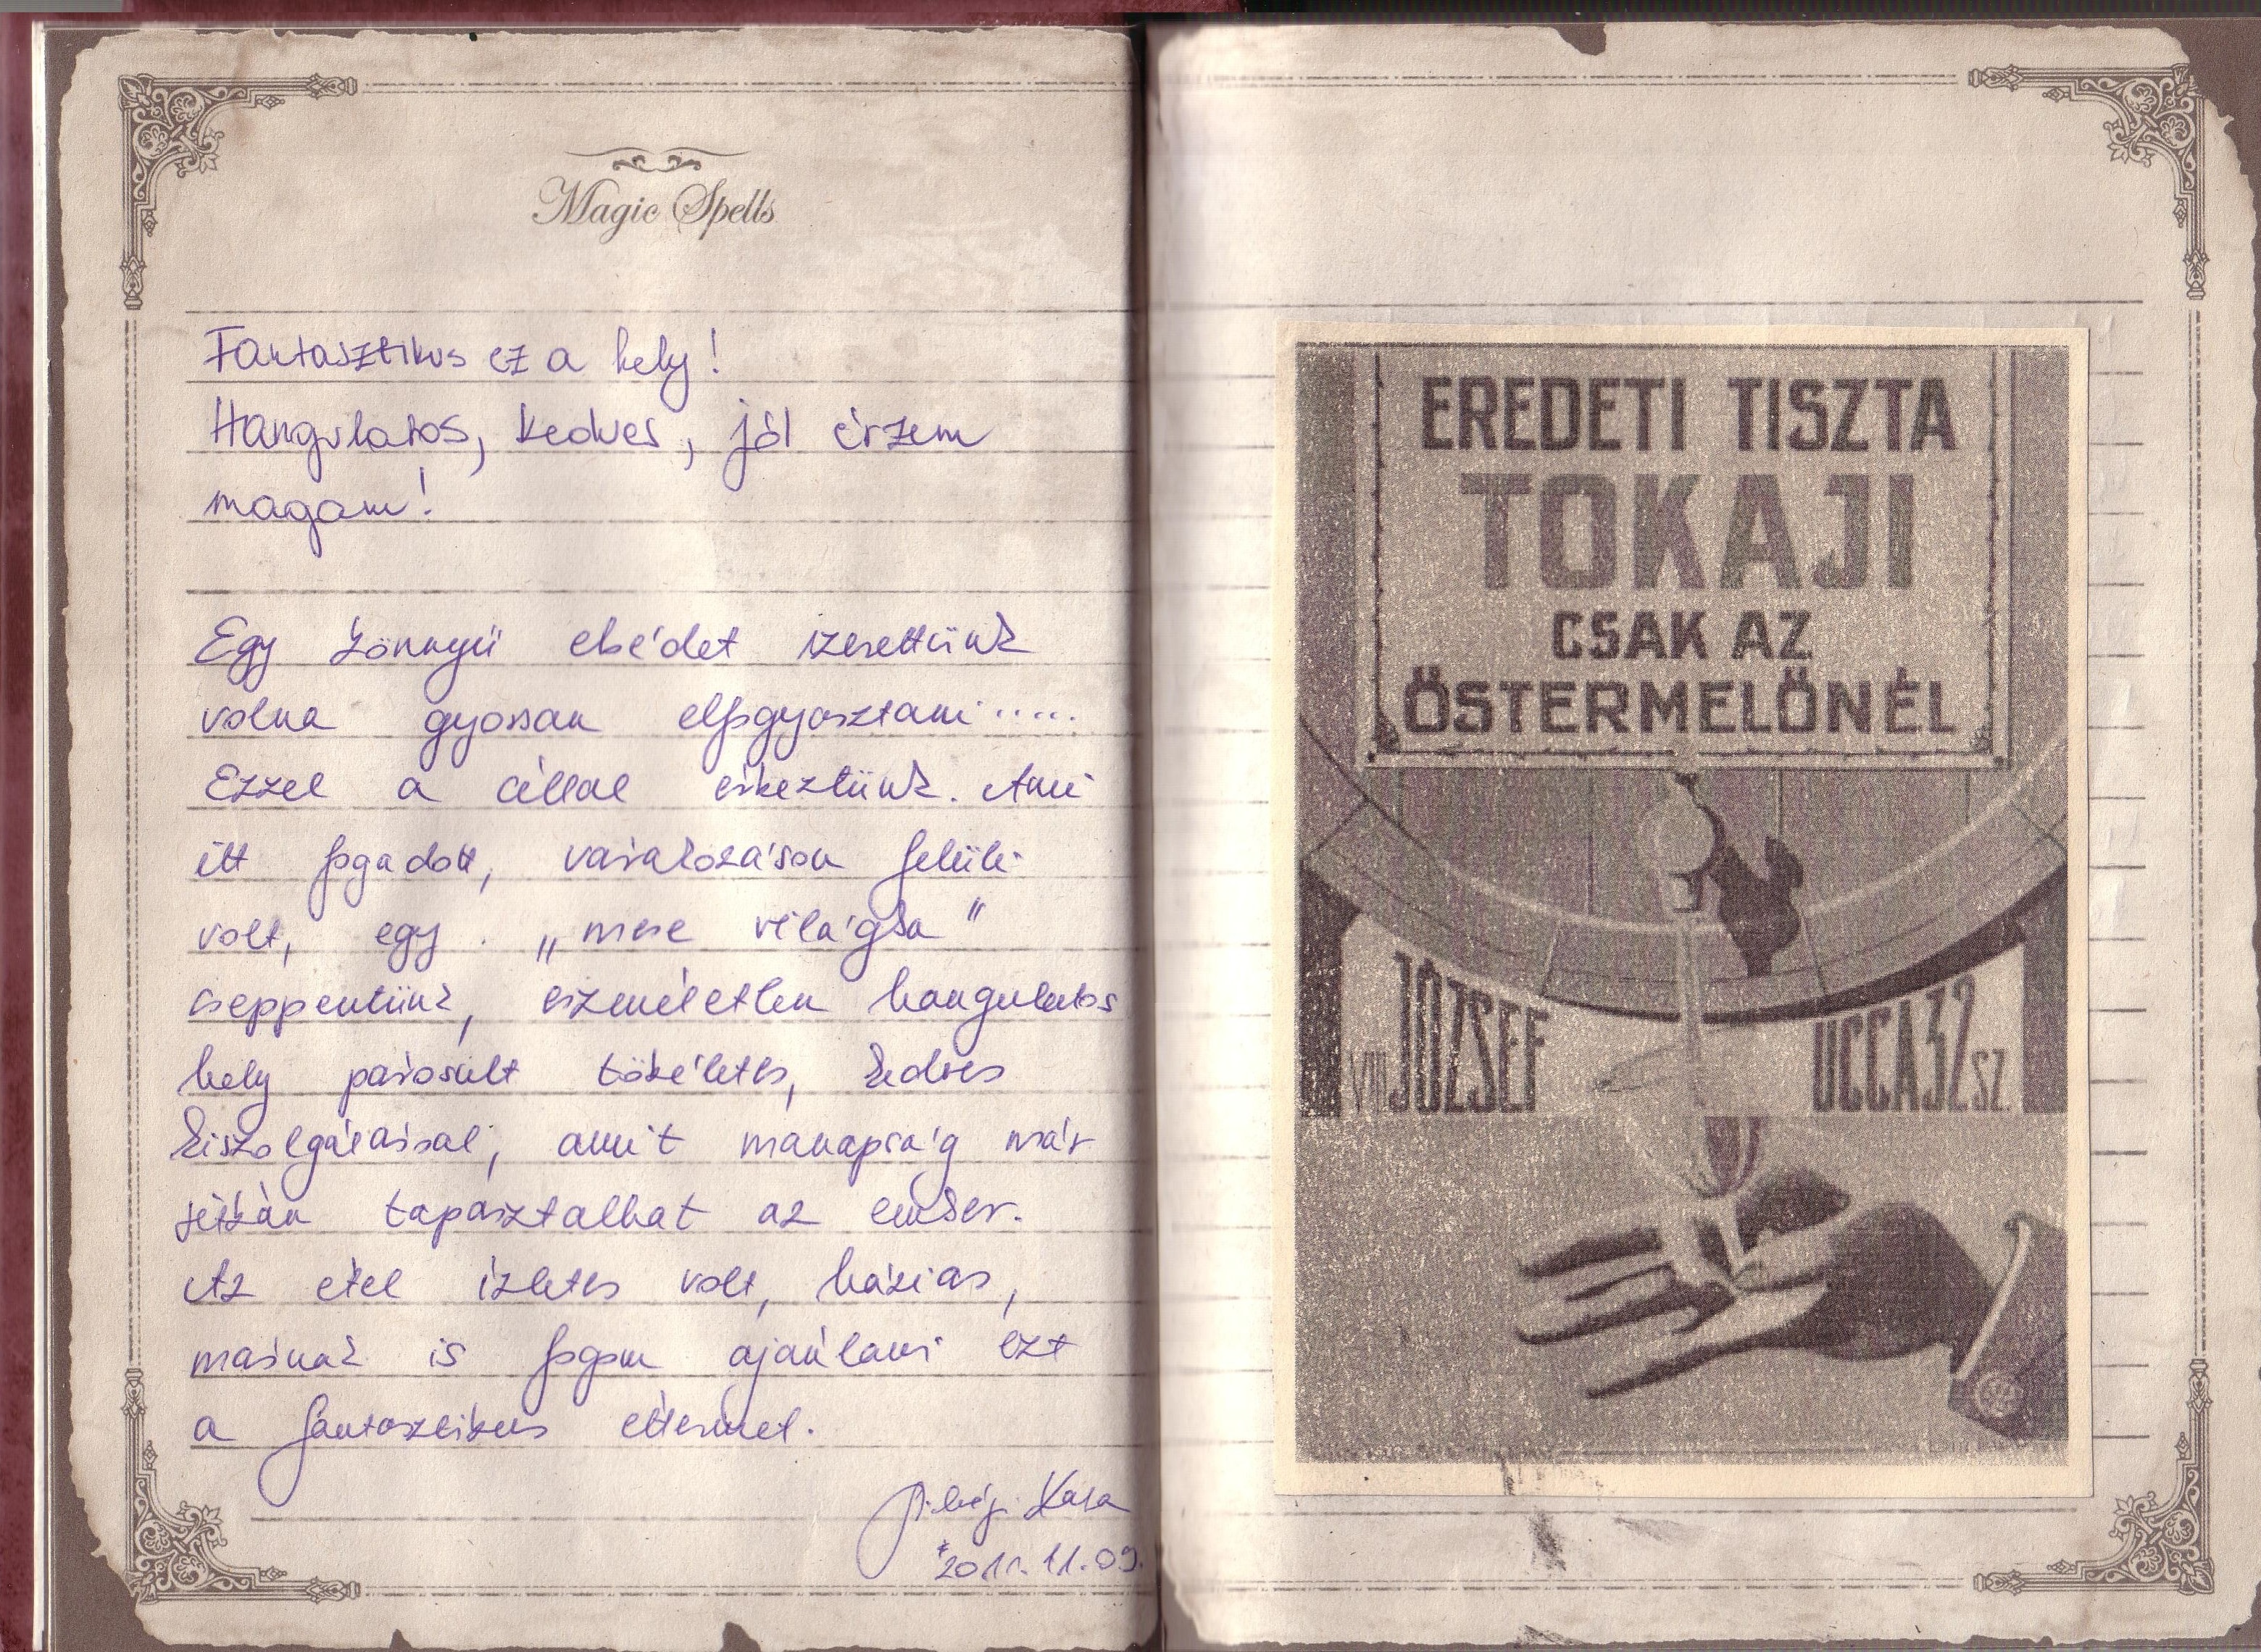 Magic Spells
Fantasztikus ez a hely!
Hangulatos, kedves, jól érzem
magam!
Egy könnyü ebédet szerettünk
volna gyorsan elfogyasztani.....
Ezzel a céllal érkeztünk. Ami
itt fogadott, várakozáson felüli
volt, egy „mese világba"
cseppentünk, eszméletlen hangulatos
hely párosult tökéletes, kedves
kiszolgálással, amit manapság már
ritkán tapasztalhat az ember.
Az étel izletes volt, házias,
másnak is fogom ajánlani ezt
a fantasztikus éttermet.
11.09.
EREDETI TISZTA
TOKAJI
CSAK AZ
ŐSTERMELŐNÉL
VIII JÓZSEF UCCA 32 SZ.